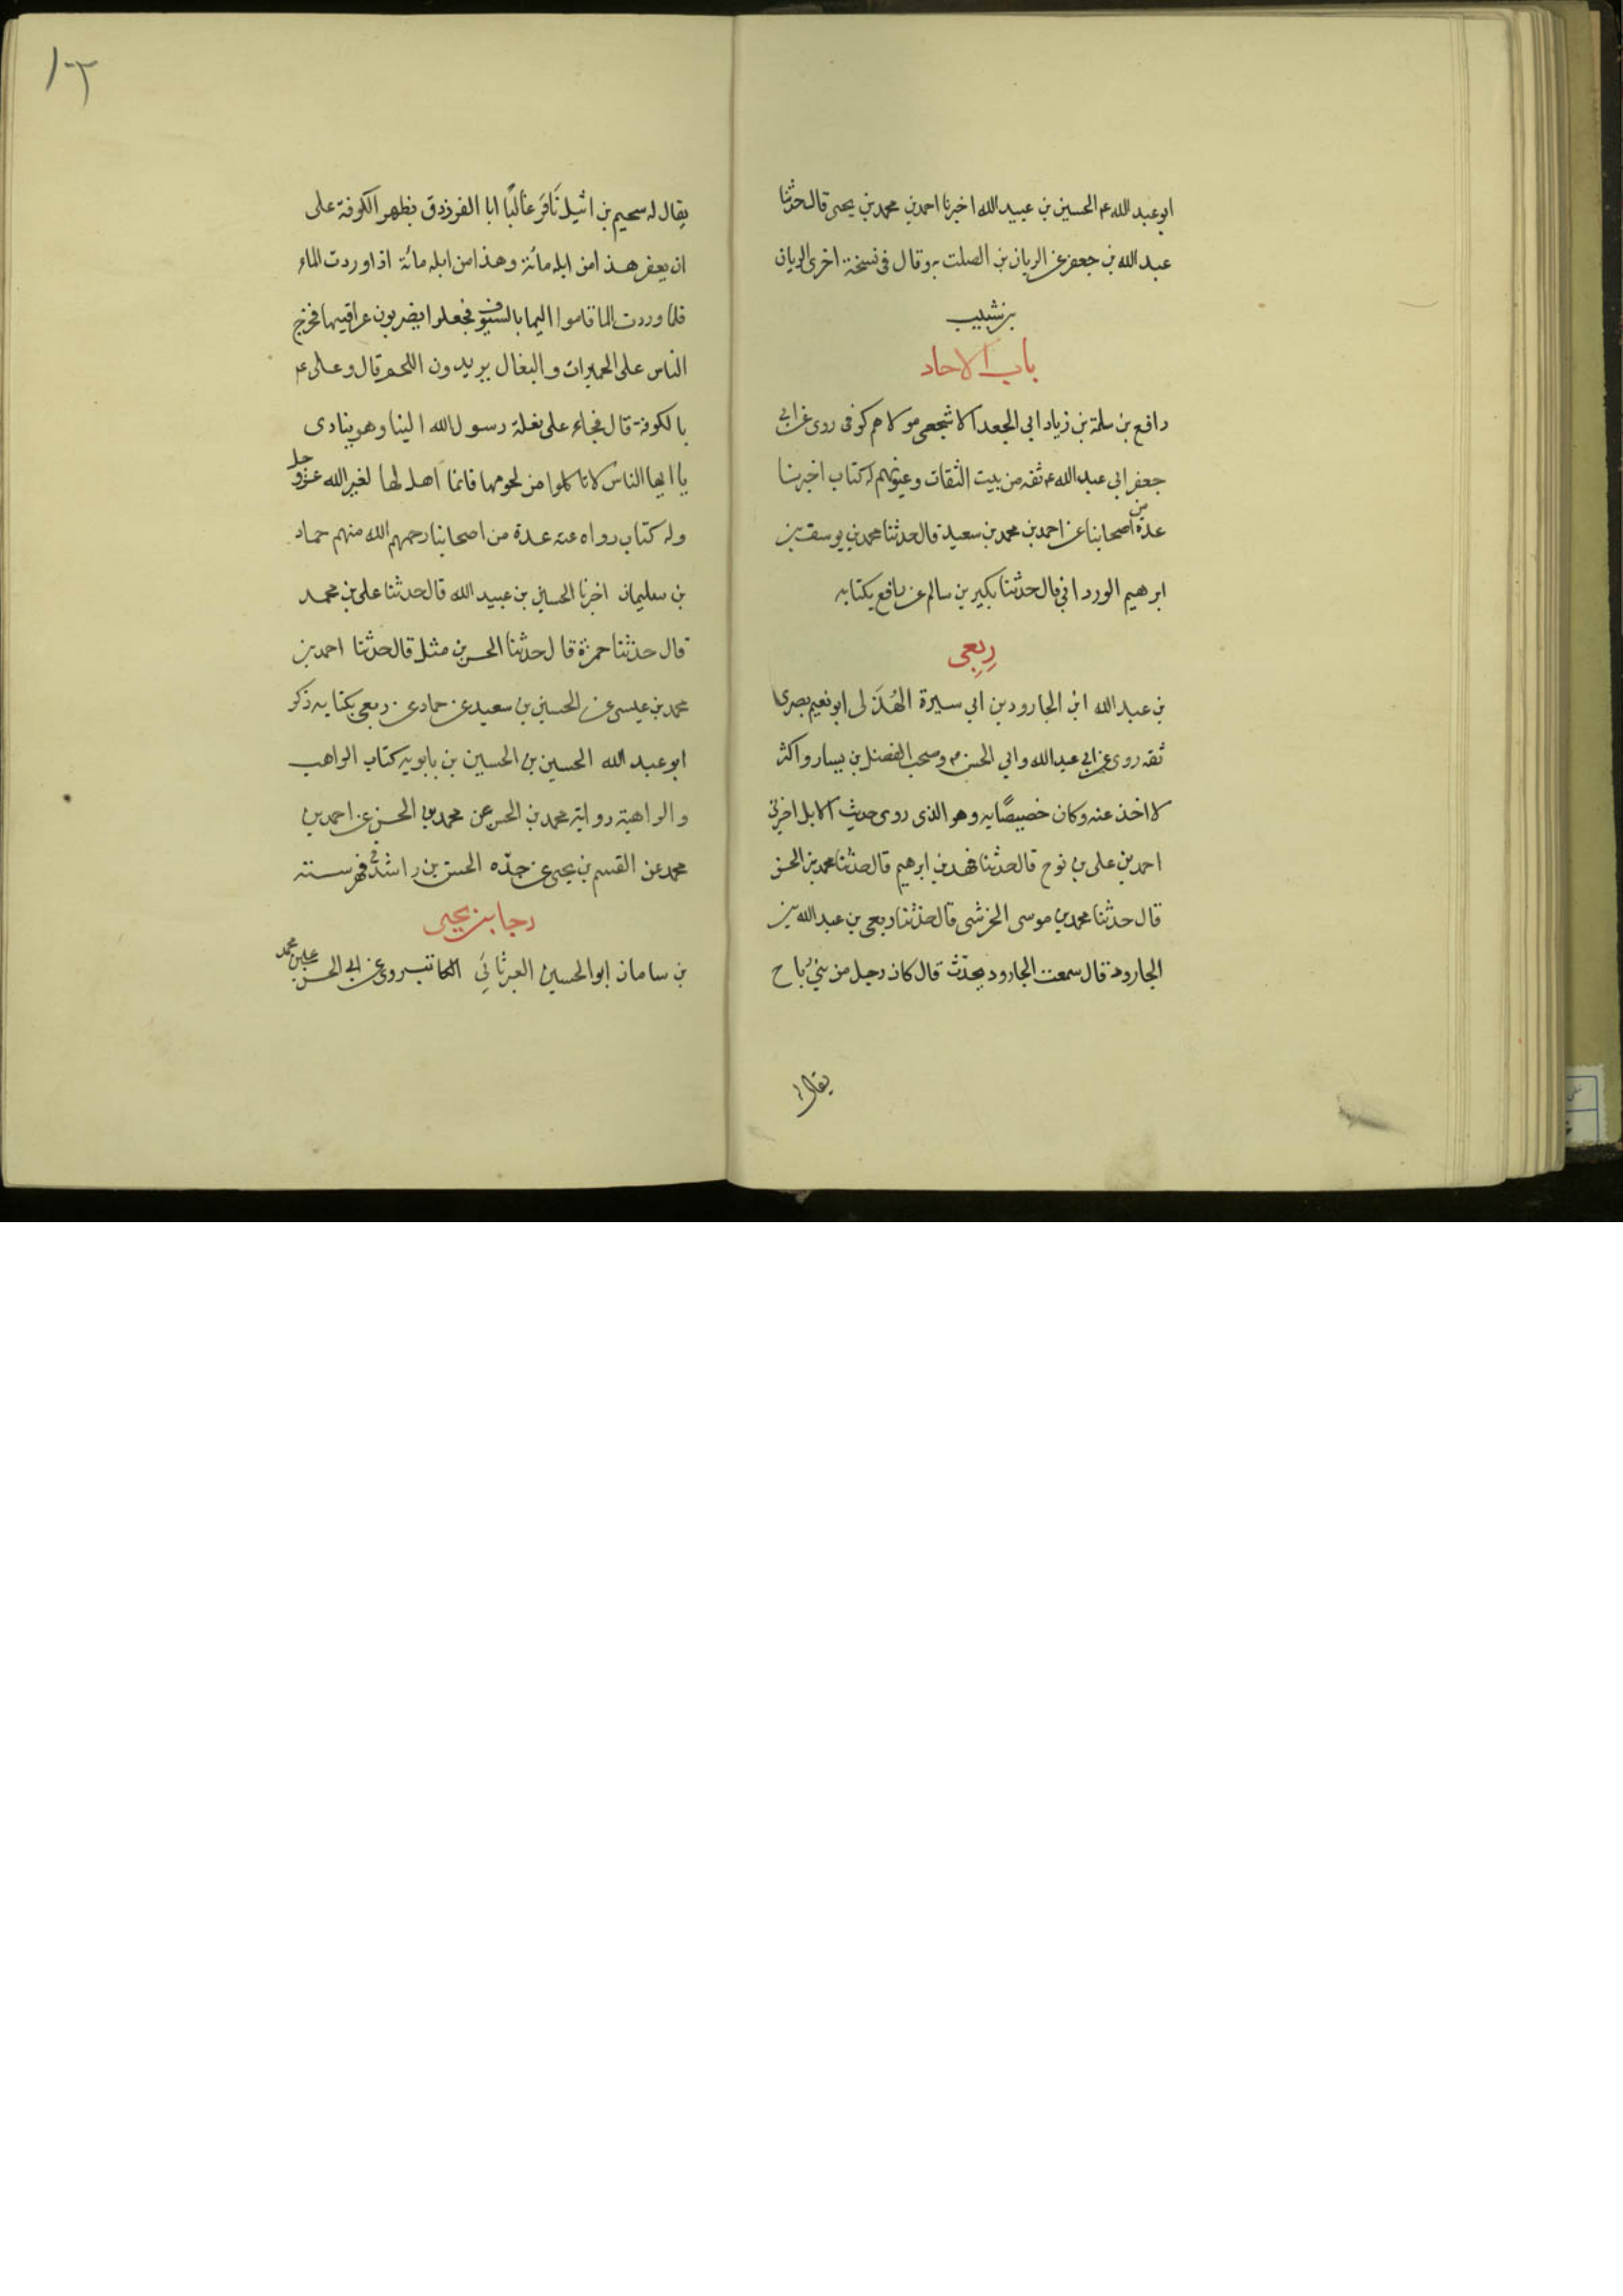 ابو عبد الله ع الحسين بن عبيد الله اخبرنا احمد بن محمد بن يحيى قال حدثنا
عبد الله بن جعفر عن الريان بن الصلت به وقال فى نسخة اخرى الريان
بن شبيب
باب الاحاد
رافع بن سلمة بن زياد ابى الجعد الاشجعى مولاهم كوفى روى عن ابى
جعفر ابى عبد الله ع ثقه من بيت الثقات وعيونهم له كتاب اخبرنا
عدة من اصحابنا عن احمد بن محمد بن سعيد قال حدثنا محمد بن يوسف بن
ابرهيم الوردانى قال حدثنا بكير بن سالم عن رافع بكتابه
رِبِعِى
بن عبد الله ابن الجارود بن ابى سبرة الهُذَلى ابو نعيم بصرى
ثقه روى عن ابى عبد الله وابى الحسن م وصحب الفضل بن يسار واكثر
الاخذ عنه وكان خصيصًا به وهو الذى روى حديث الابل اخبرنى
احمد بن على بن نوح قال حدثنا فهد بن ابرهيم قال حدثنا محمد بن الحسن
قال حدثنا محمد بن موسى الخرشى قال حدثنا ربعى بن عبد الله بن
الجارود قال سمعت الجارود يحدّث قال كان رجل من بنى رباح
يقال له
١٠٣
يقال له سحيم بن اثيل نَافَر غالبًا ابا الفرزدق بظهر الكوفة على
ان يعقر هذا من ابله مائة وهذا من ابله مائة اذا وردت الماء
فلما وردت الما قاموا اليها بالسيوف فجعلوا يضربون عراقيبها فخرج
الناس على الحميرات والبغال يريدون اللحم قال وعلى ع
بالكوفة قال فجاء على بغلة رسول الله الينا وهو ينادى
يا ايها الناس لا تاكلوا من لحومها فانما اهل لها لغير الله عز وجل
وله كتاب رواه عنه عدة من اصحابنا رحمهم الله منهم حماد
بن سليمان اخبرنا الحسين بن عبيد الله قال حدثنا على بن محمد
قال حدثنا حمزة قال حدثنا الحسن بن مثل قال حدثنا احمد بن
محمد بن عيسى عن الحسين بن سعيد عن حماد عن ربعى بكتابه ذكر
ابو عبد الله الحسين بن الحسين بن بابويه كتاب الراهب
والراهبة رواية محمد بن الحسن عن محمد بن الحسن عن احمد بن
محمد عن القسم بن يحيى عن جدّه الحسن بن راشد فى فهرسته
رجا بن يحيى
بن سامان ابو الحسين العبرثائى الكاتب روى عن ابى الحسن على بن محمد